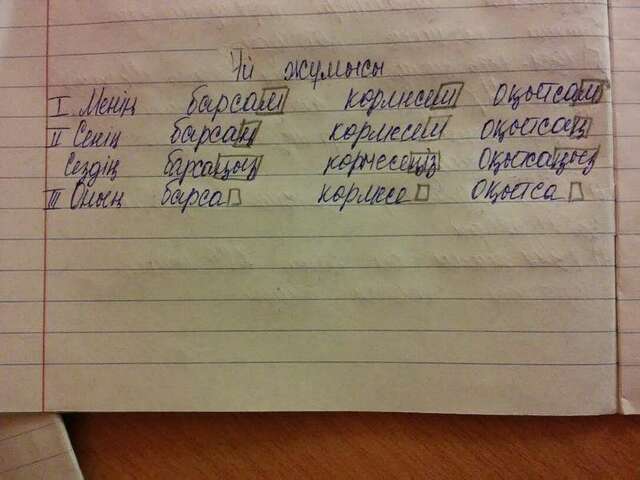 Үй жумысы
I Менің барсам көрмесем оқытсам
II Сенің барсаң көрмесең оқытсаң
Сездің барсаңыз көрмесеңіз оқытсаңыз
III Оның барса көрмесе оқытса